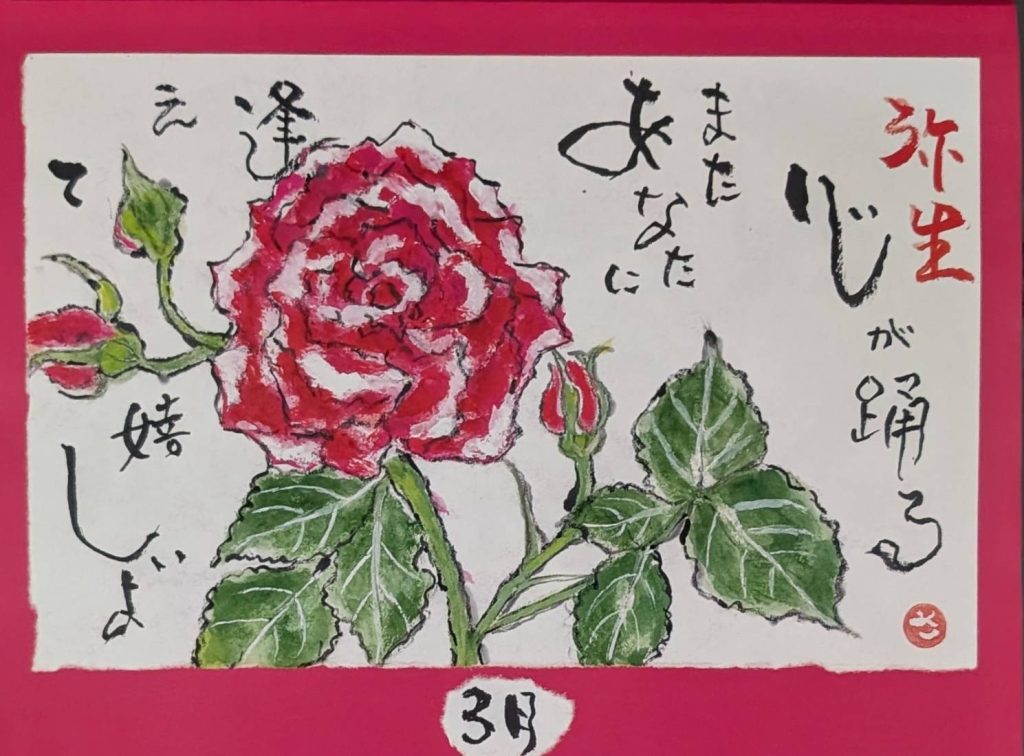 弥生
心が踊る
また
あなたに
逢えて
嬉しいよ
3月